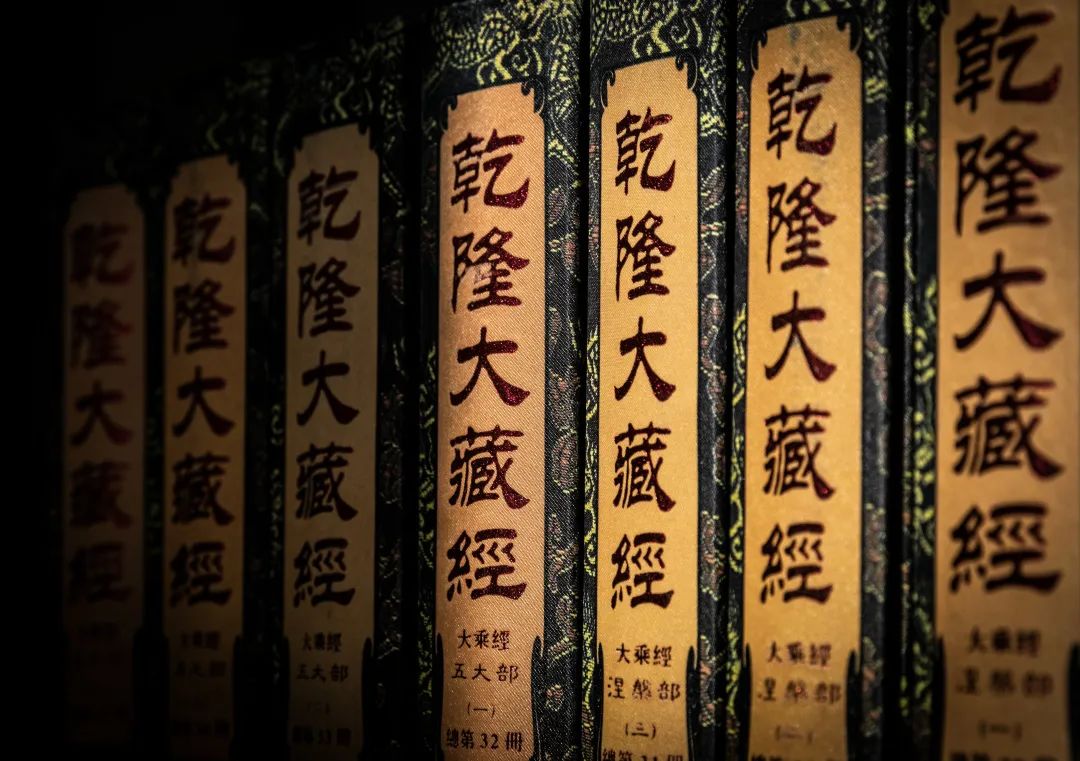 乾隆大藏經
乾隆大藏經
大乘經
五大部
乾隆大藏經
大乘經
五大部
(二)
乾隆大藏經
大乘經
五大部
(一)
總第32冊
乾隆大藏經
大乘經
涅槃部
(三)
乾隆大藏經
大乘經
涅槃部
(二)
乾隆大藏經
大乘經
涅槃部
(一)